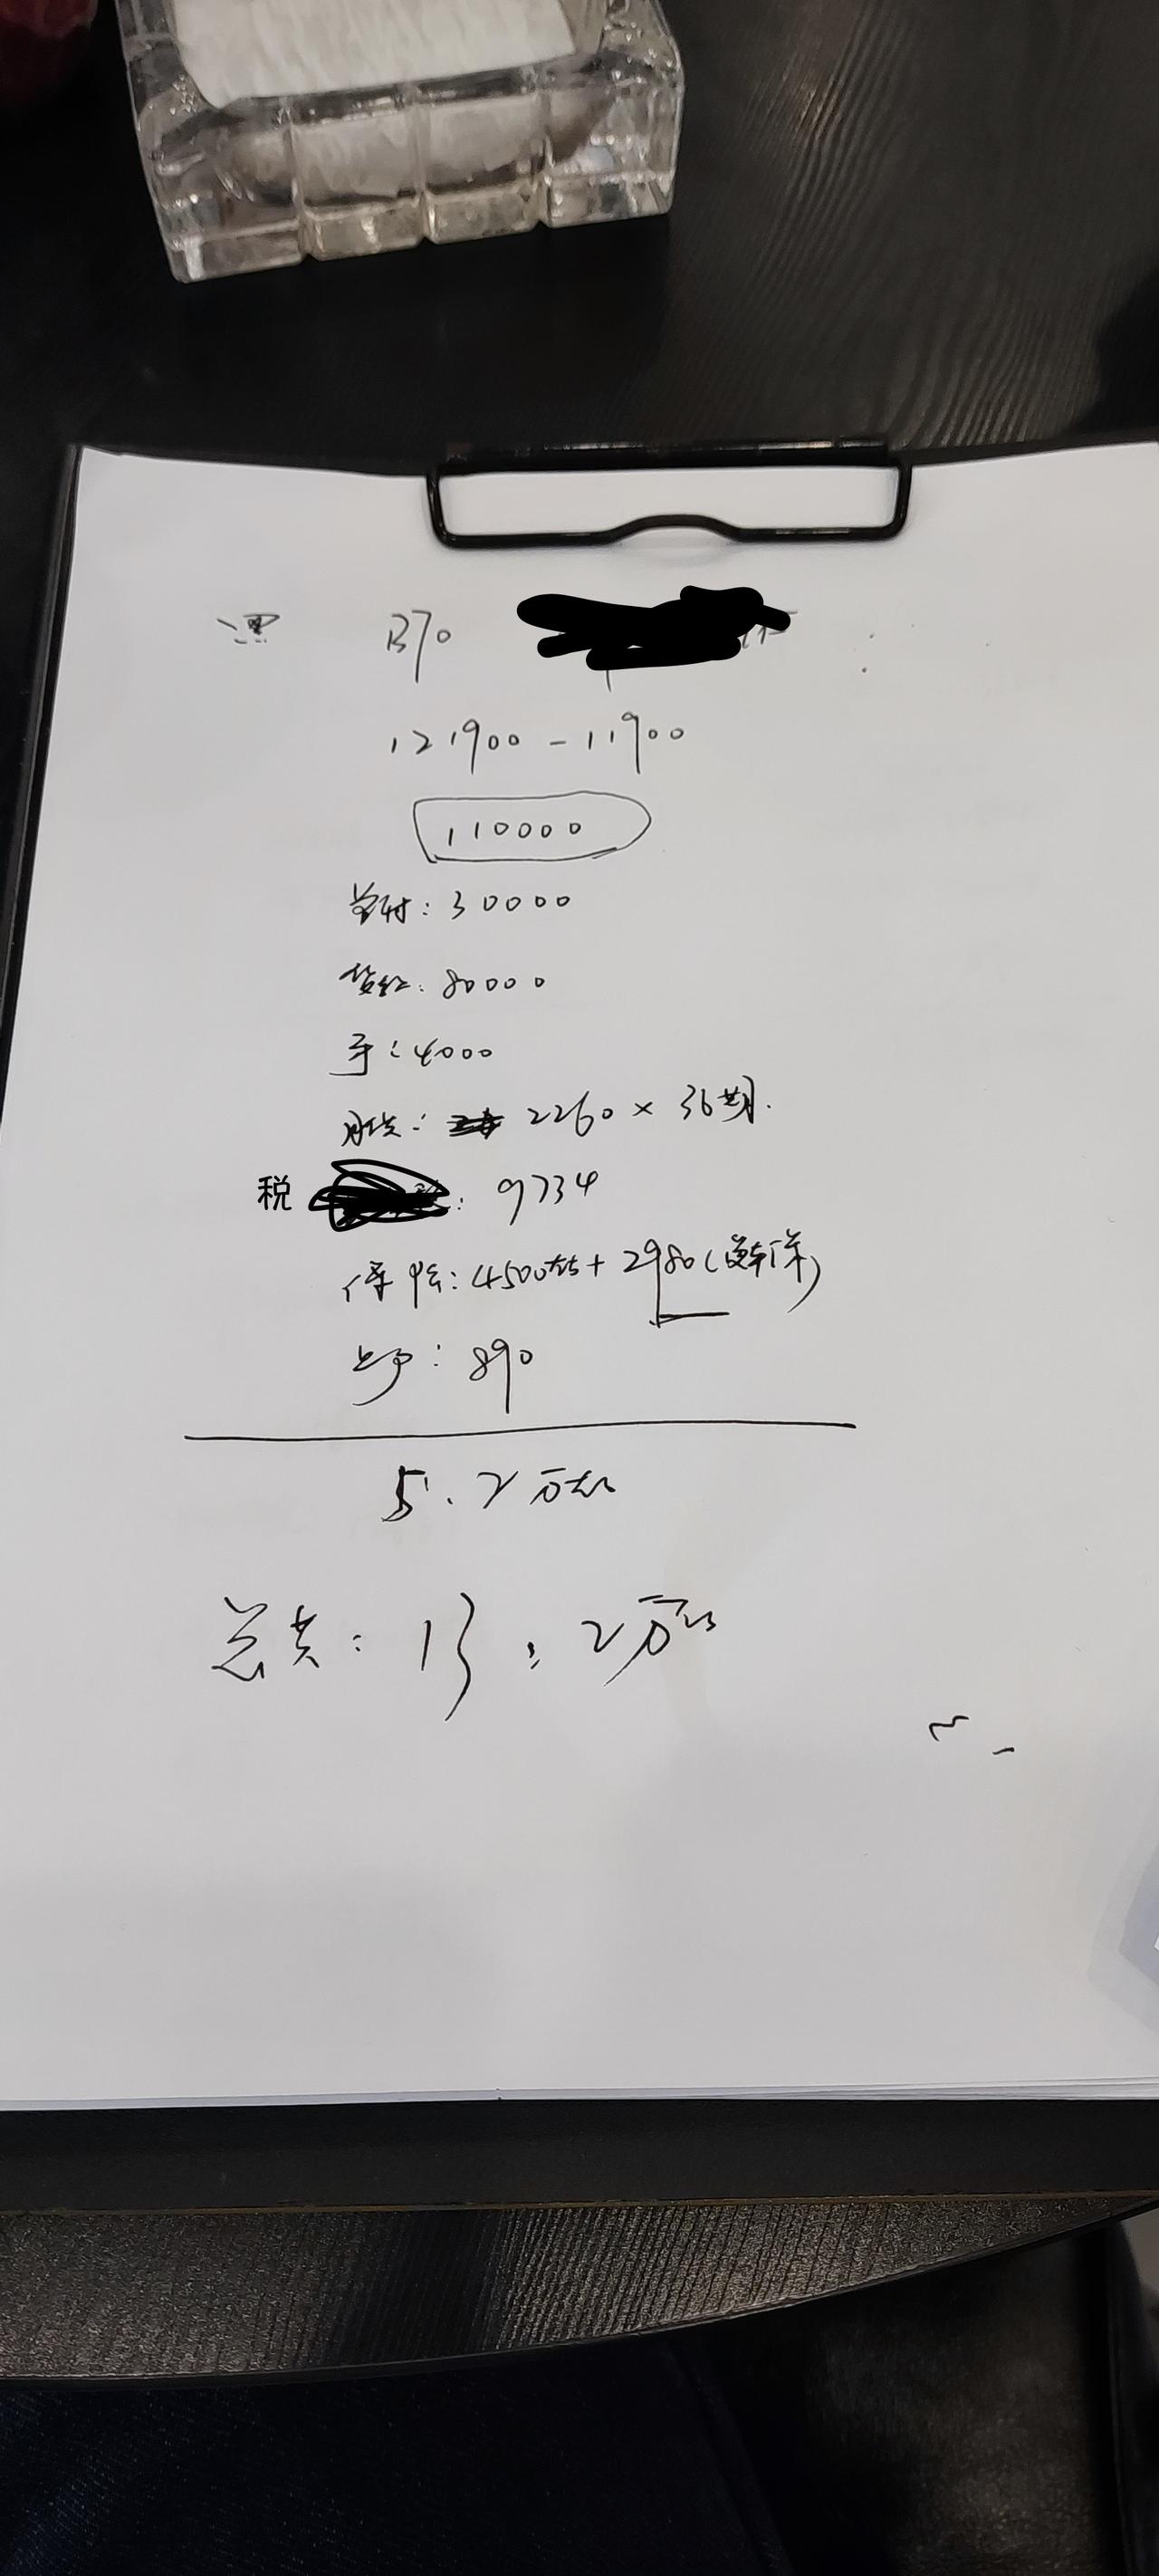 B70
121900-11900
110000
首付：30000
贷红：80000
手：4000
月供：2260×36期.
税：9734
保险：4500左右+2980(盗车保)
上户：890
5.2万左右
总共：13.2万左右